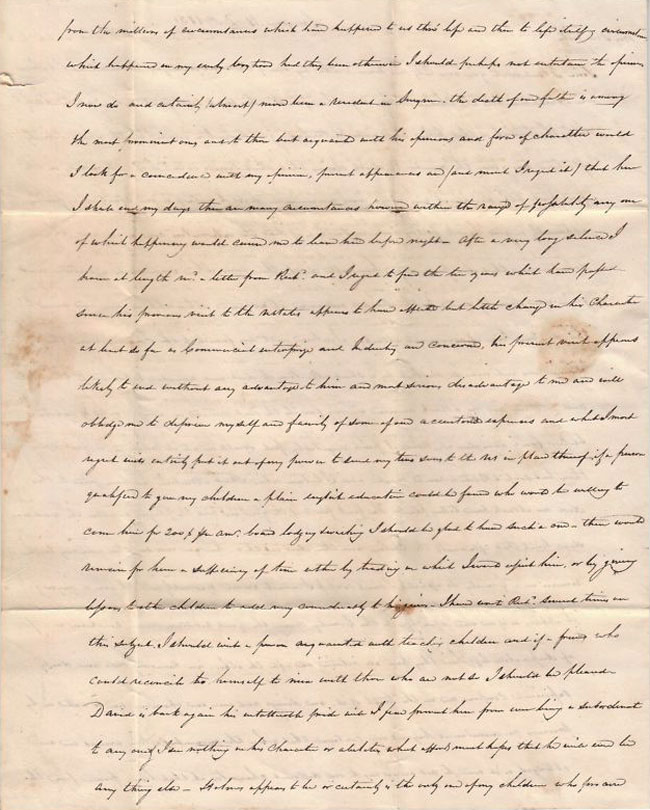 from the millions of circumstances which have happened to us thro' life and then to life itself, circumstances
which happened in my early boyhood had they been otherwise I should perhaps not entertain the opinions
I now do and certainly (almost) never been a resident in Smyrna - the death of our father is among
the most prominent ones and to those best acquainted with his opinions and force of character would
I look for a coincidence with my opinion, present appearances are (and much I regret it) that here
I shall end my days there are many circumstances however within the range of possibility any one
of which happening would cause me to leave here before night - After a very long silence I
have at length rec'd a letter from Rich'd and I regret to find the two years which have past
since his previous visit to the UStates appears to have effected but little change in his Character
at least so far as Commercial enterprize and Industry are concerned, his present visit appears
likely to end without any advantage to him and most serious disadvantage to me and will
obbledge me to deprive myself and family of some of our accustomed expenses and what I most
regret will entirely put it out of my power to send my two sons to the US in place thereof, if a person
qualified to give my children a plain english education could be found who would be willing to
come here for 200 $ per ann. board lodging washing I should be glad to have such a one - there would
remain for him a sufficiency of time either by trading in which I would assist him, or by giving
lessons to other children to add very considerably to his gains - I have wrote Rich'd several times on
this subject, I should wish a person acquainted with teaching children and if a friend who
could reconcile to himself to mix with those who are not so I should be pleased -
David is back again his untottereable pride will I fear prevent him from ever being a subordinate
to any one & I see nothing in his Character or abilities which affords much hopes that he will ever be
any thing else - appears to be or certainly is the only one of my children who has are